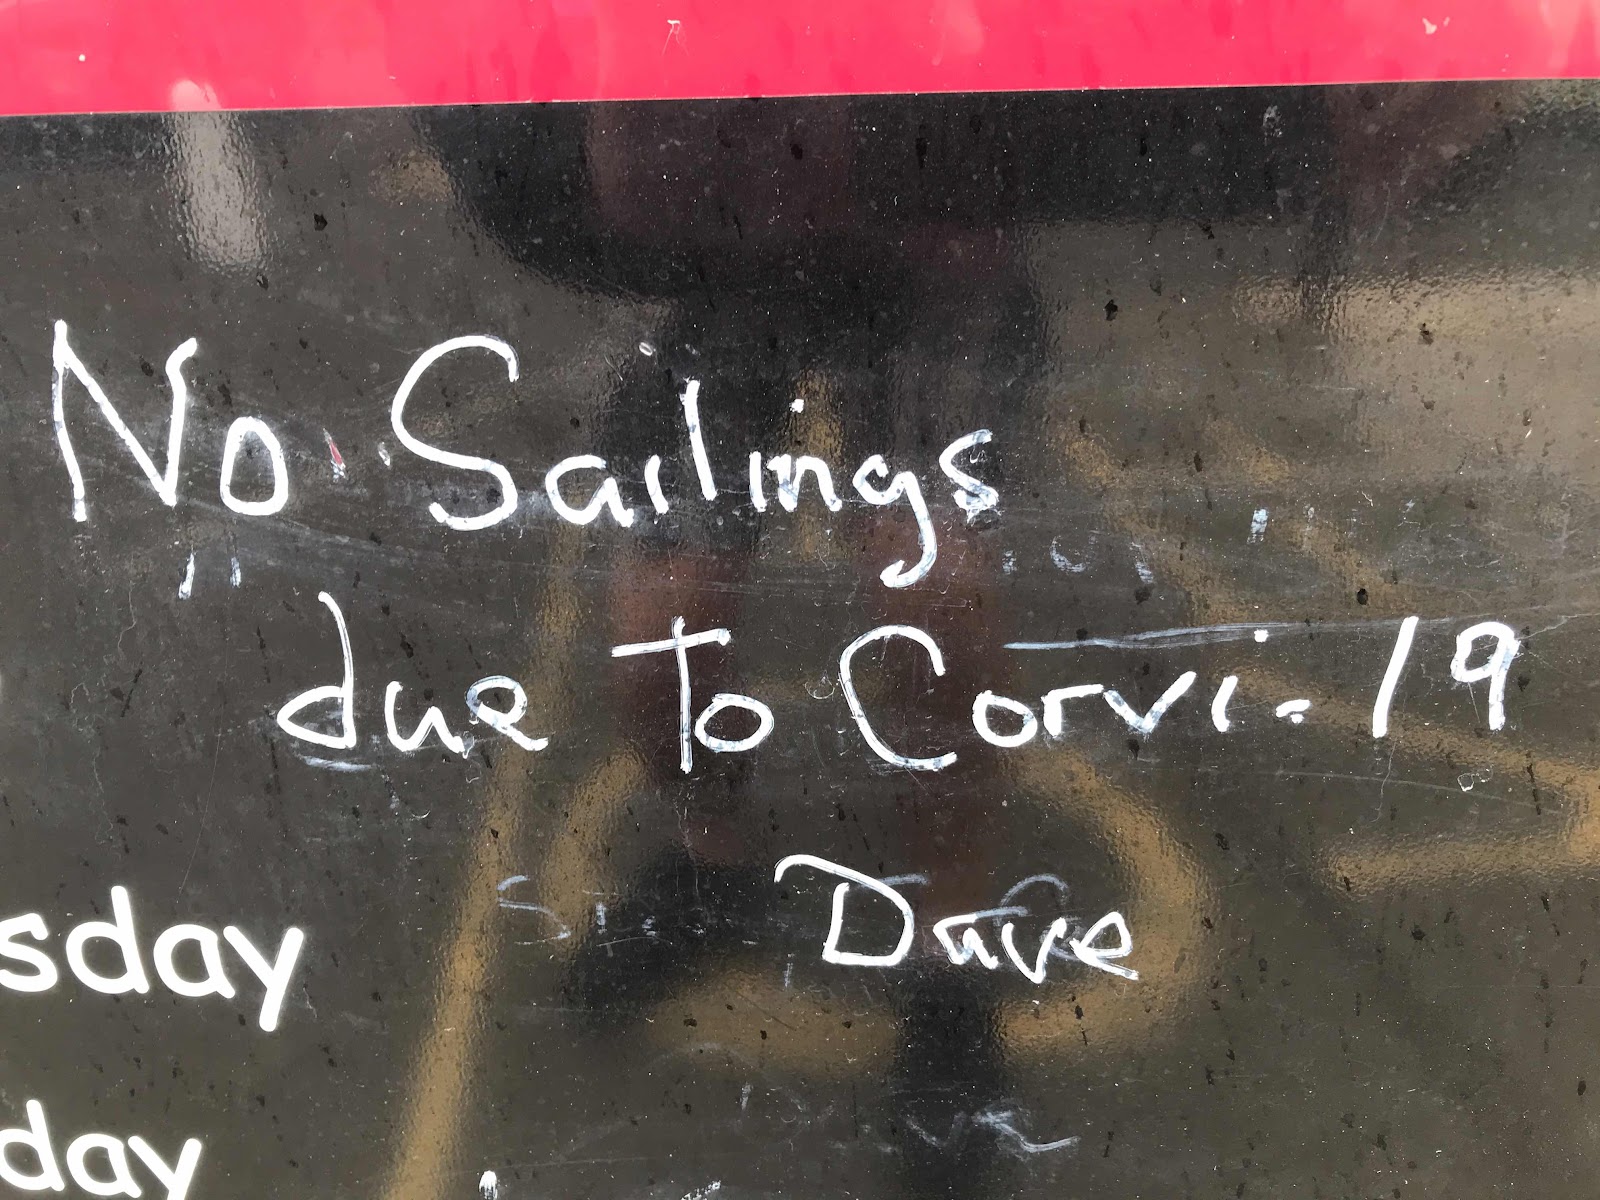 No Sailings
due To Corvi-19
Drive
sday
day